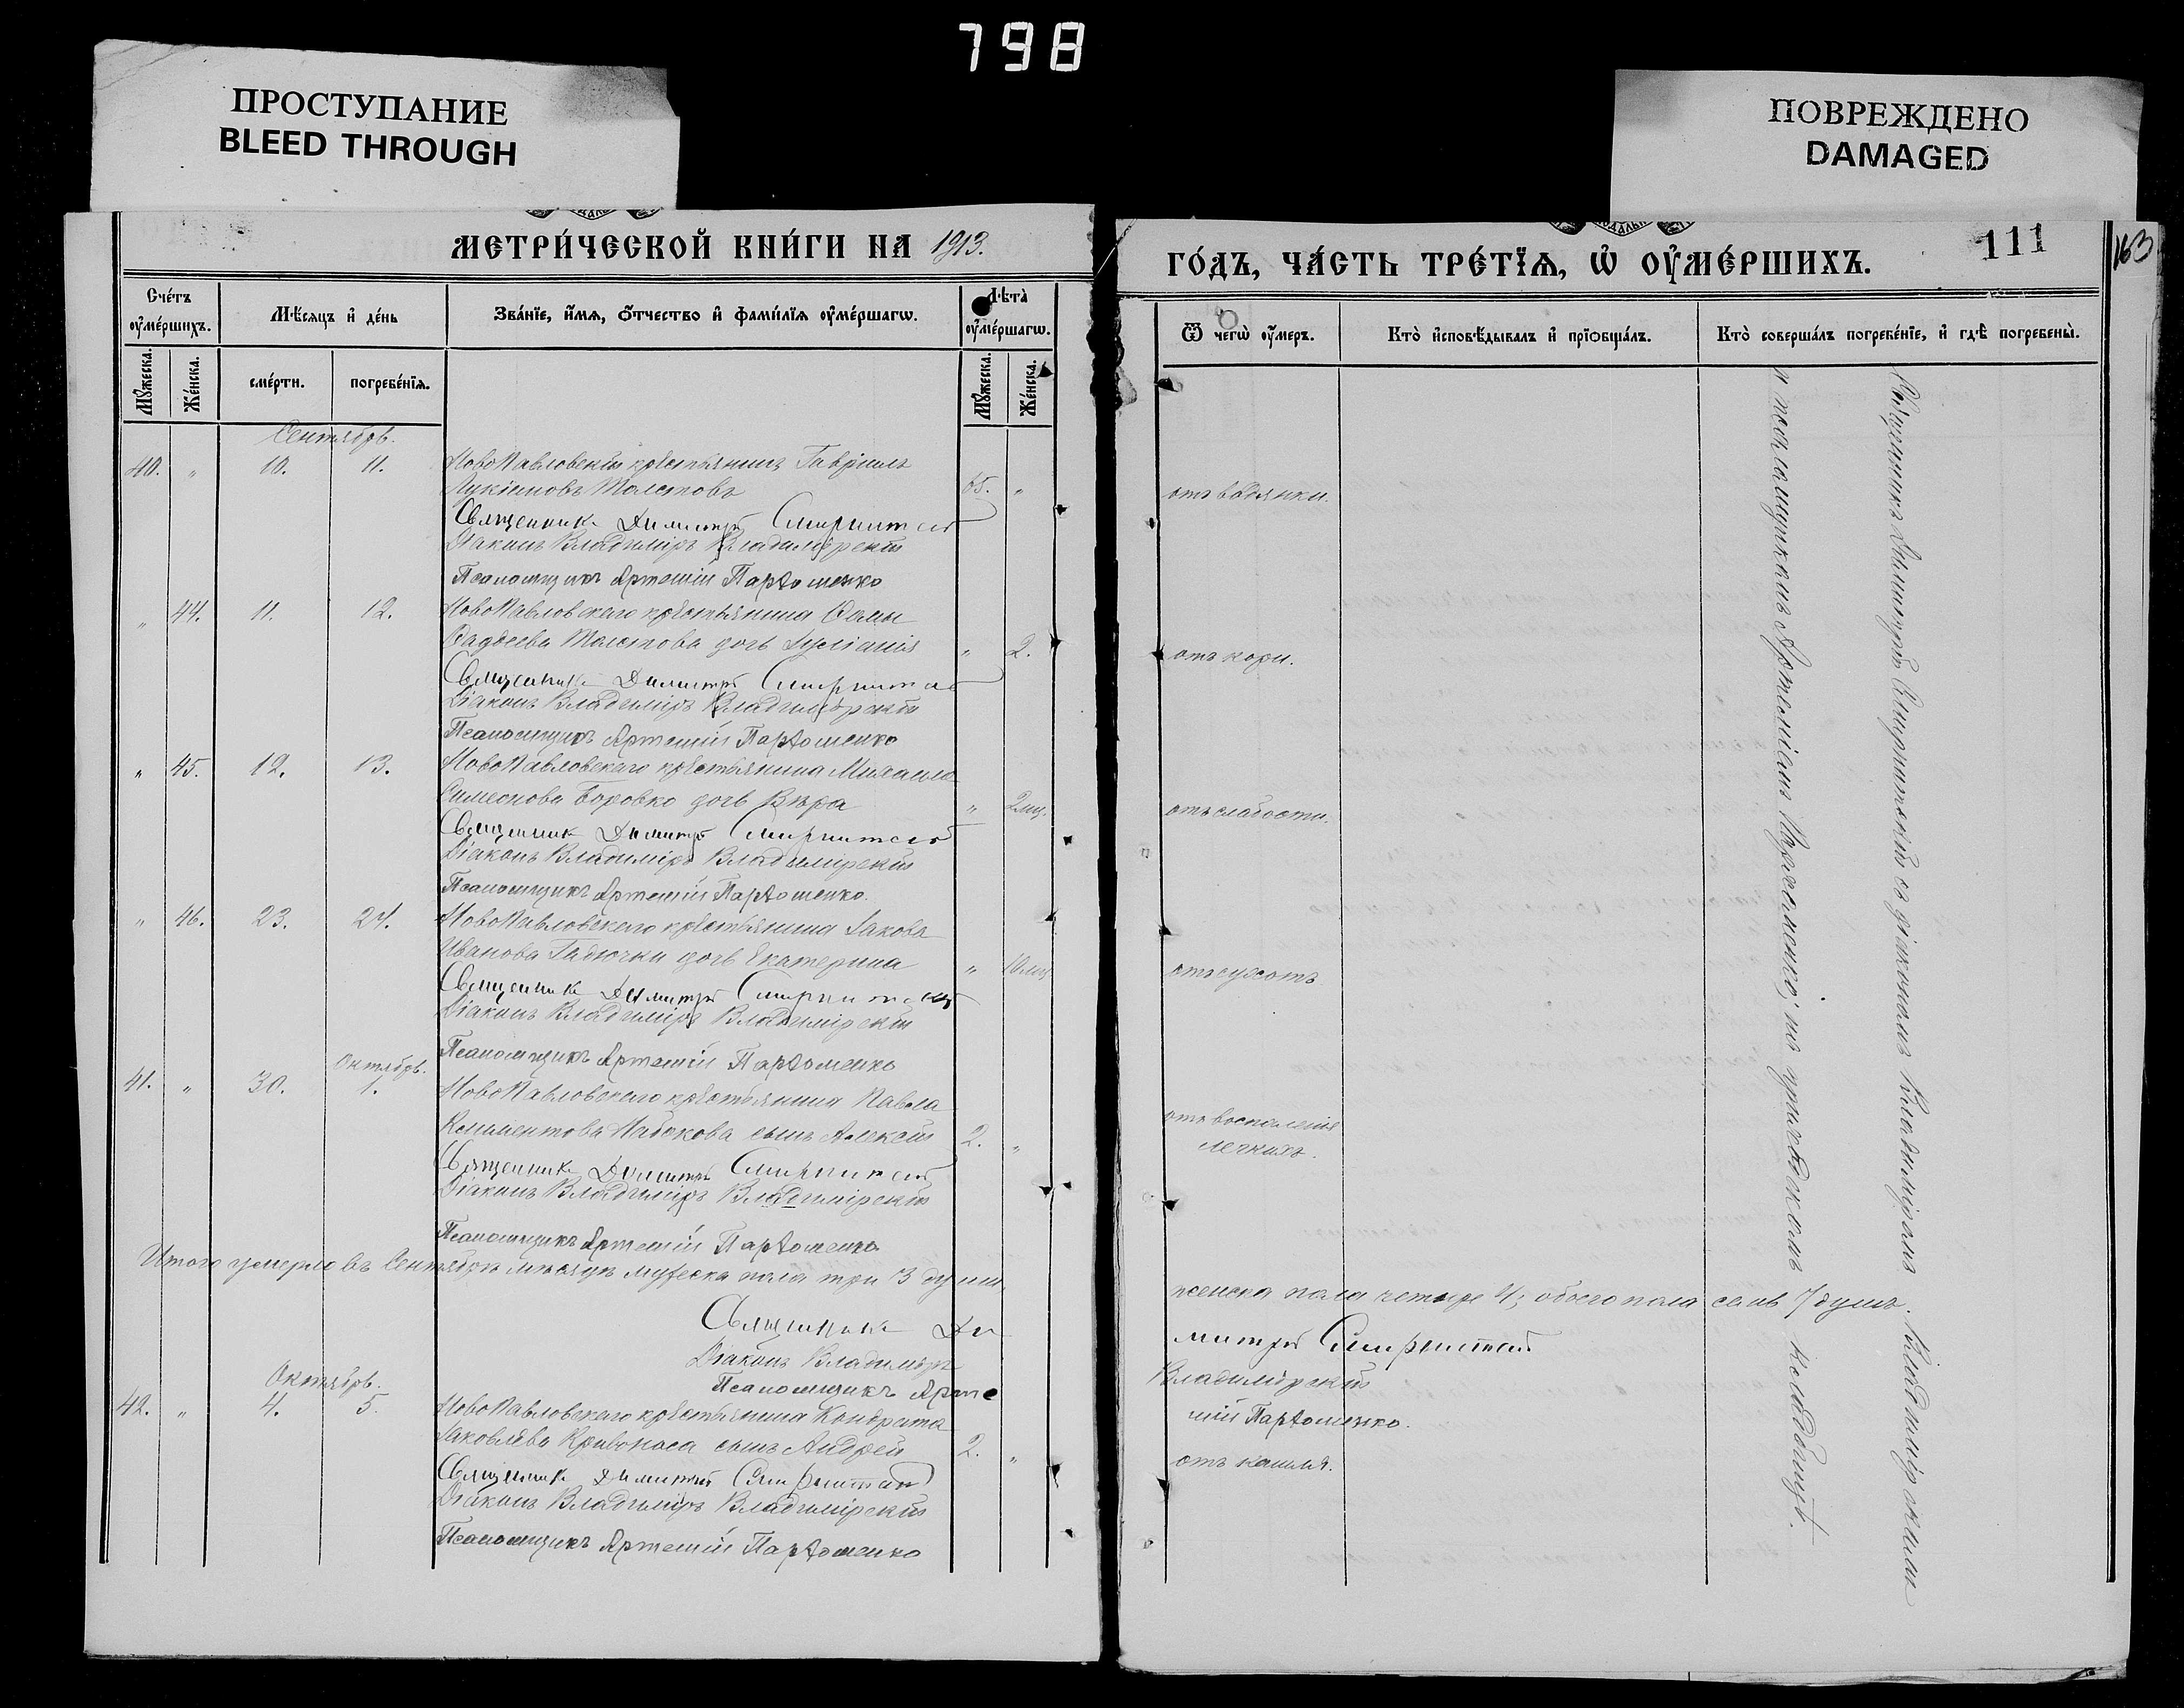 798
ПРОСТУПАНИЕ
BLEED THROUGH
ПОВРЕЖДЕНО
DAMAGED
МЕТРИ́ЧЕСКОЙ КНИ́ГИ НА 1913.
ГО́ДЪ, ЧА́СТЬ ТРЕ́ТЇѦ, Ѡ҆ ОУ҆МЕ́РШИХЪ.
111
163
Сче́тъ оу҆ме́ршихъ.
Мѣ́сяцъ и҆ де́нь
Зва́нїе, и҆́мѧ, ѻ҆́тчество и҆ фами́лїѧ оу҆ме́ршагѡ.
Лѣ́та оу҆ме́ршагѡ.
Ѿ чегѡ̀ оу҆́меръ.
Кто̀ и҆сповѣ́дывалъ и҆ прїѡбща́лъ.
Кто̀ соверша́лъ погребе́нїе, и҆ гдѣ̀ погребены̀.
Мꙋ́жеска.
Же́нска.
сме́рти.
погребе́нїѧ.
Мꙋ́жеска.
Же́нска.
Сентябрь.
40. " 10. 11. НовоПавловскій крестьянинъ Гавріилъ
Лукіановъ Толстовъ 65. " отъ водянки.
Священникъ Димитрій Смирнитскій
Діаконъ Владиміръ Владимірскій
Псаломщикъ Артемій Парѳоменко
" 44. 11. 12. НовоПавловскаго крестьянина Ѳомы
Ѳаддеева Толстова дочь Іуліанія " 2. отъ кори.
Священникъ Димитрій Смирнитскій
Діаконъ Владиміръ Владимірскій
Псаломщикъ Артемій Парѳоменко
" 45. 12. 13. НовоПавловскаго крестьянина Михаила
Симеонова Боровко дочь Вѣра " 2 мц. отъ слабости.
Священникъ Димитрій Смирнитскій
Діаконъ Владиміръ Владимірскій
Псаломщикъ Артемій Парѳоменко.
" 46. 23. 24. НовоПавловскаго крестьянина Іакова
Иванова Гадючки дочь Екатерина " 10 мц. отъ сухотъ
Священникъ Димитрій Смирнитскій
Діаконъ Владиміръ Владимірскій
Псаломщикъ Артемій Парѳоменко
Октябрь.
41. " 30. 1. НовоПавловскаго крестьянина Павла
Климентова Набокова сынъ Алексій 2. " отъ воспаленія
легкихъ.
Священникъ Димитрій Смирнитскій
Діаконъ Владиміръ Владимірскій
Псаломщикъ Артемій Парѳоменко
Итого умерло въ Сентябрѣ мѣсяцѣ мужеска пола три 3 души,
женска пола четыре 4; обоего пола семь 7 душъ.
Священникъ Димитрій Смирнитскій
Діаконъ Владиміръ Владимірскій
Псаломщикъ Артемій Парѳоменко.
Октябрь.
42. " 4. 5. НовоПавловскаго крестьянина Кондрата
Іаковлева Кривоноса сынъ Андрей 2. " отъ кашля.
Священникъ Димитрій Смирнитскій
Діаконъ Владиміръ Владимірскій
Псаломщикъ Артемій Парѳоменко
Священникъ Димитрій Смирнитскій съ діакономъ Владиміромъ Владимірскимъ
и псаломщикомъ Артеміемъ Парѳоменко; на приходскомъ кладбищѣ.